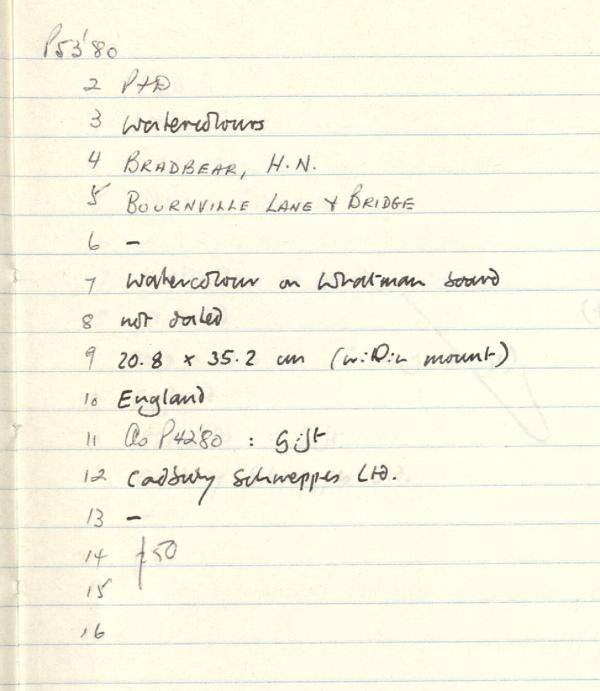 P53'80
2 P+D
3 Watercolours
4 BRADBEAR, H.N.
5 BOURNVILLE LANE & BRIDGE
6 –
7 Watercolour on Whatman board
8 not dated
9 20.8 x 35.2 cm (within mount)
10 England
11 As P42'80 : Gift
12 Cadbury Schweppes Ltd.
13 –
14 £50
15
16